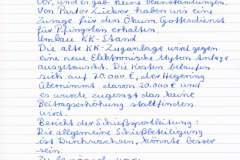 vor, und es gab keine Beanstandungen.
Von Pastor Zieker haben wir eine
Zusage für den Ökum. Gottesdienst
für Pfingsten erhalten.
Umbau KK-Stand
Die alte KK-Zuganlage wird gegen
eine neue Elektronische Meyton Anlage
ausgetauscht. Die Kosten belaufen
sich auf 70.000 €, der Hegering
übernimmt davon 20.000 € und
es wurde zugesagt das keine
Beitragserhöhung stattfinden
wird.
Bericht der Schießsportleitung:
Die allgemeine Schießbeteiligung
ist Durchwachsen, könnte besser
sein.